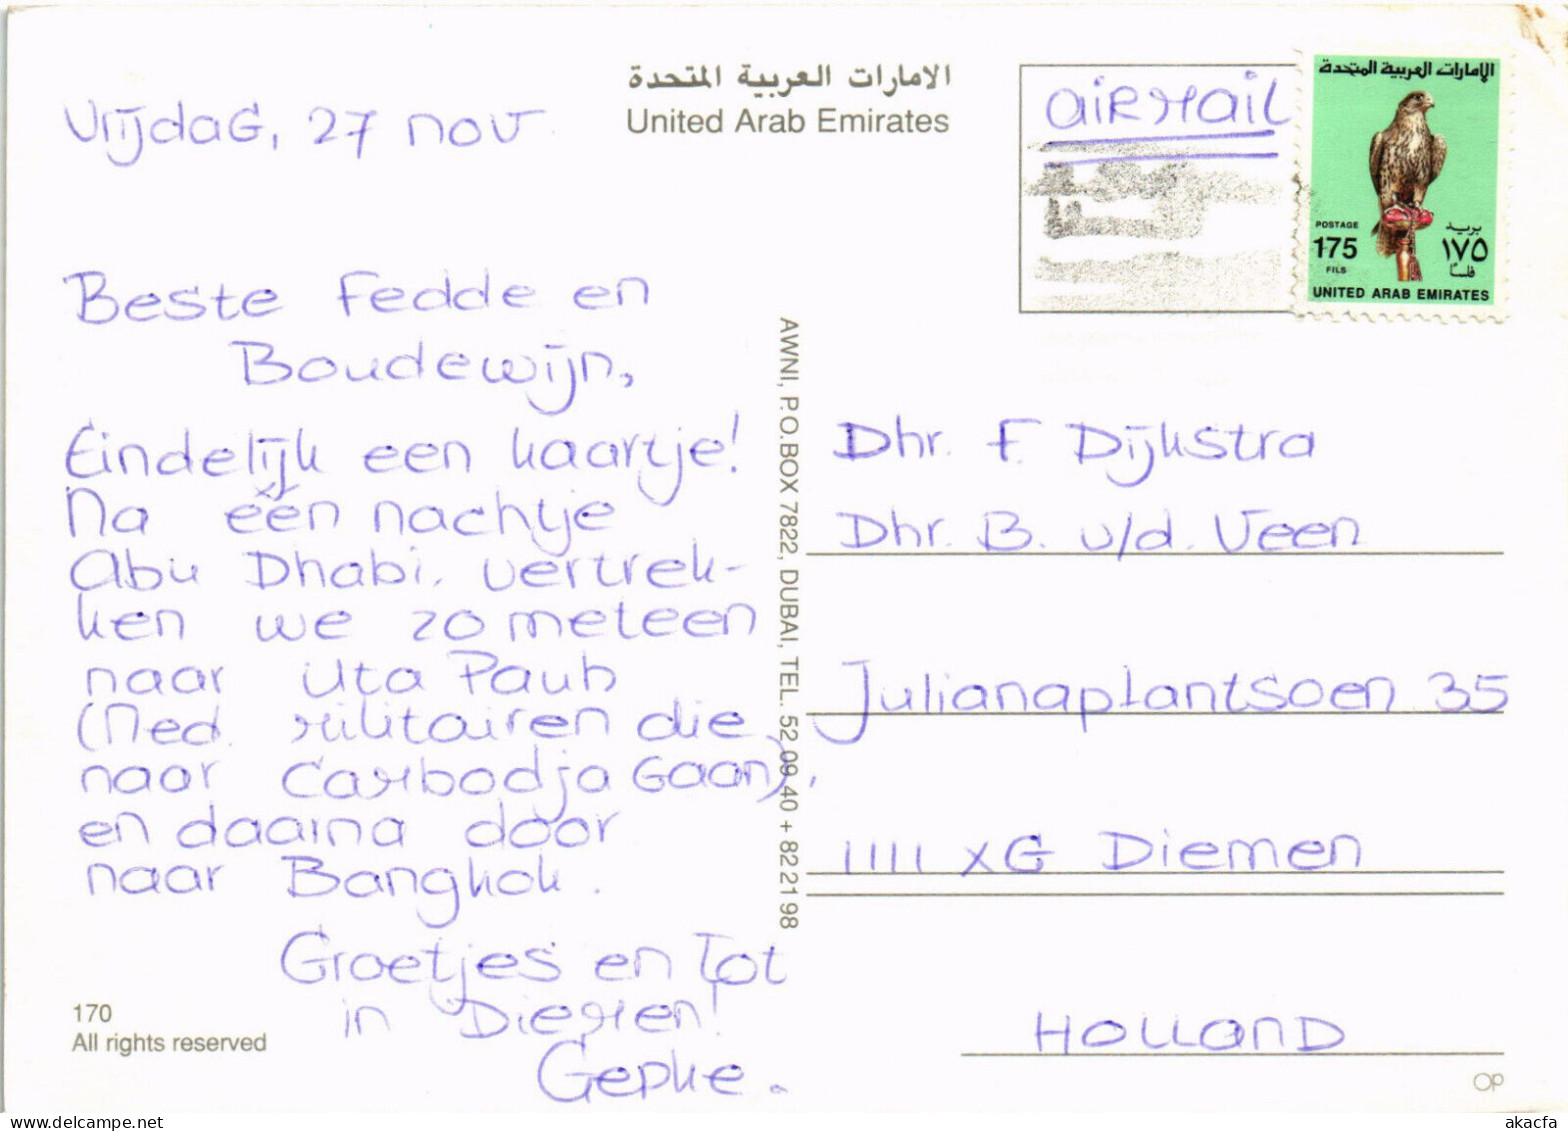 الامارات العربية المتحدة
United Arab Emirates
Vrijdag, 27 nov
Beste Fedde en
Boudewijn,
Eindelijk een kaartje!
Na één nachtje
Abu Dhabi, vertrek-
ken we zo meteen
naar Uta Pauh
(Ned. militairen die
naar Cambodja Gaan),
en daarna door
naar Bangkok.
Groetjes en Tot
in Diemen!
Gepke.
170
All rights reserved
AWNI, P.O.BOX 7822, DUBAI, TEL. 52 09 40 + 82 21 98
AIRMAIL
الإمارات العربية المتحدة
POSTAGE
بريد
175
١٧٥
FILS
فلسًا
UNITED ARAB EMIRATES
Dhr. F. Dijkstra
Dhr. B. v/d. Veen
Julianaplantsoen 35
1111 XG Diemen
HOLLAND
OP
akacfa